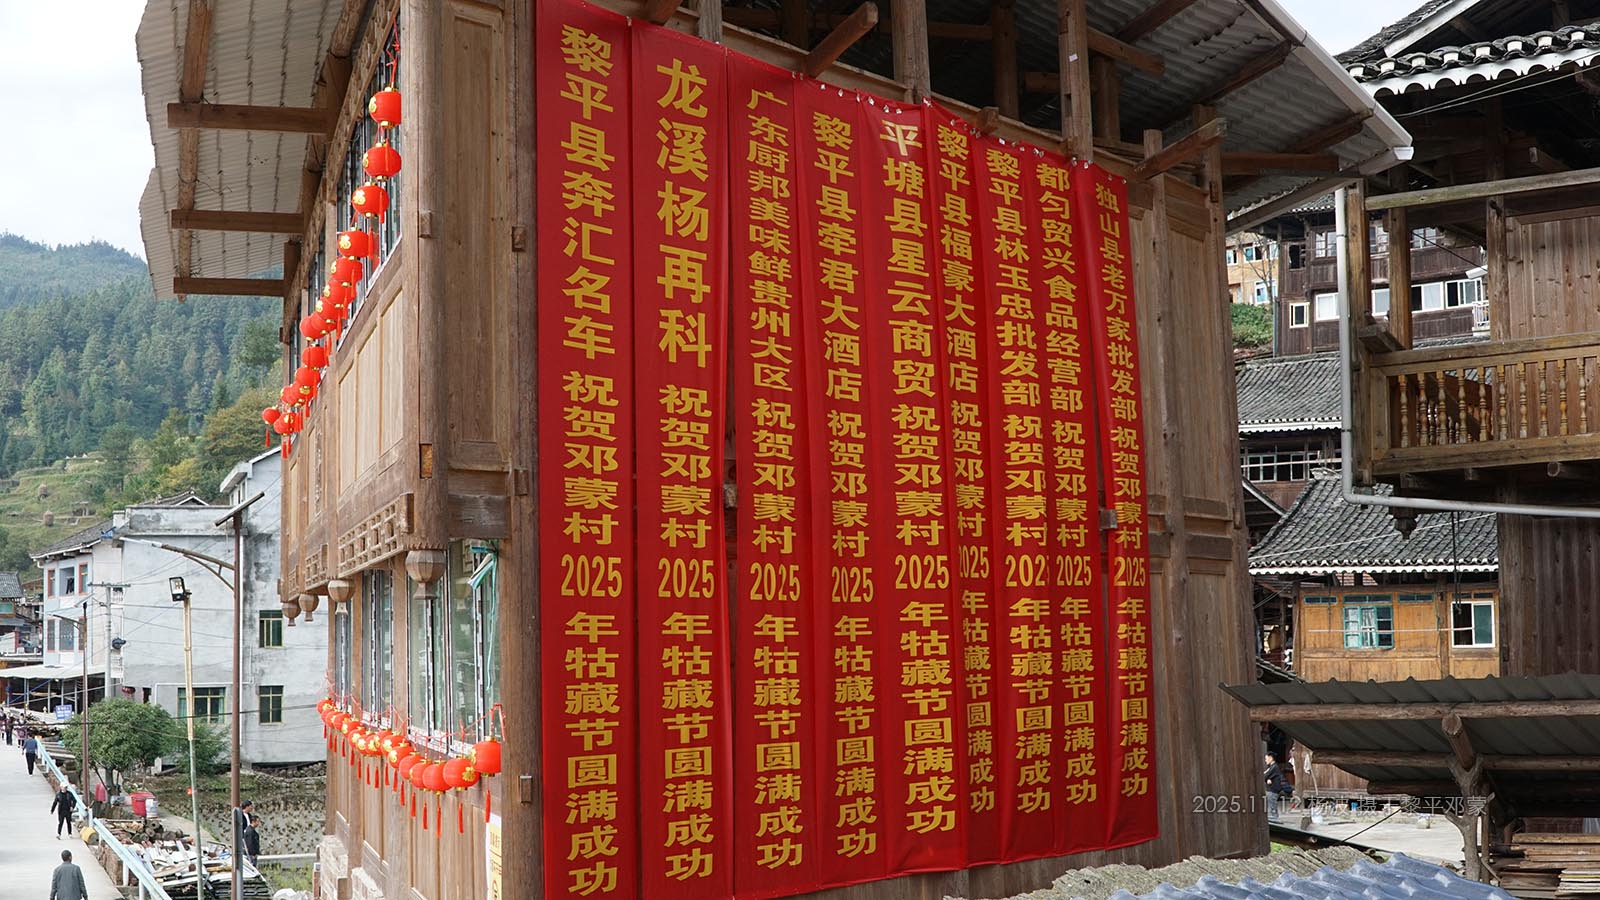 黎平县奔汇名车 祝贺邓蒙村2025年牯藏节圆满成功
龙溪杨再科 祝贺邓蒙村2025年牯藏节圆满成功
广东厨邦美味鲜贵州大区 祝贺邓蒙村2025年牯藏节圆满成功
黎平县牵君大酒店 祝贺邓蒙村2025年牯藏节圆满成功
平塘县星云商贸 祝贺邓蒙村2025年牯藏节圆满成功
黎平县福豪大酒店 祝贺邓蒙村2025年牯藏节圆满成功
黎平县林玉忠批发部 祝贺邓蒙村2025年牯藏节圆满成功
都匀贸兴食品经营部 祝贺邓蒙村2025年牯藏节圆满成功
独山县老万家批发部 祝贺邓蒙村2025年牯藏节圆满成功
2025.11.12 杨波 摄于黎平邓蒙